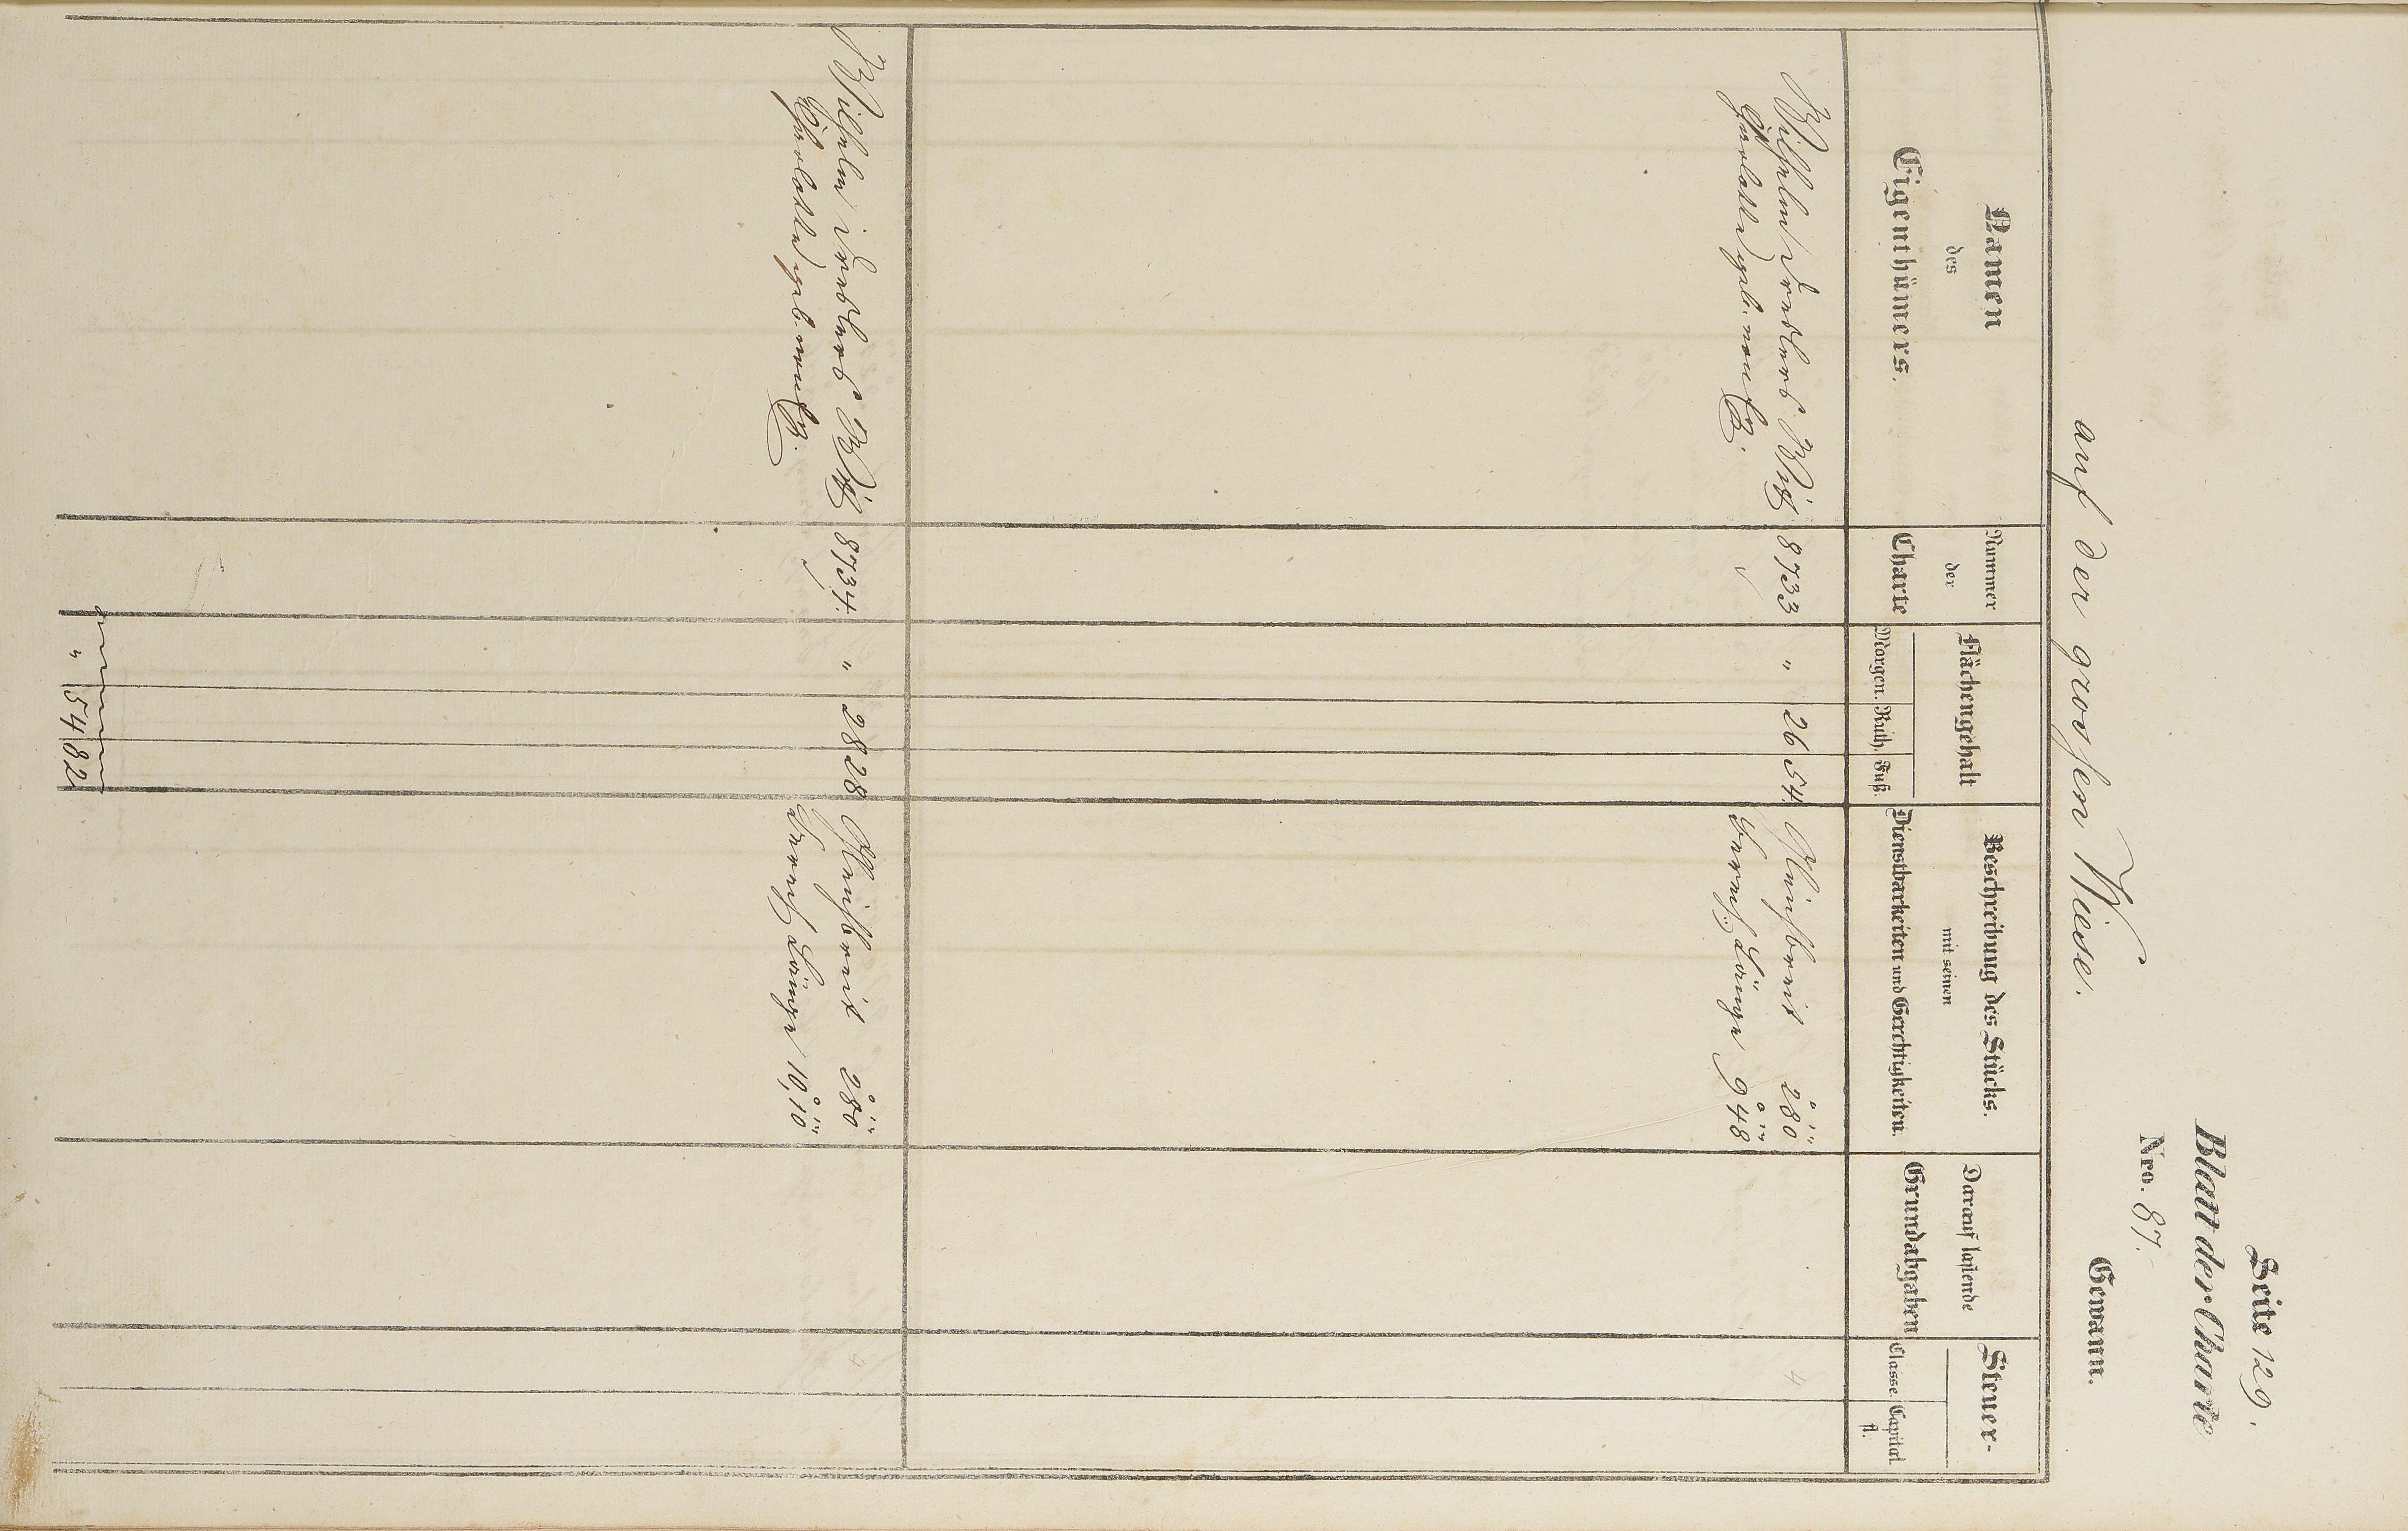 Seite 129.
Blatt der Charte
Nro. 87.
auf der grossen Wiese. Gewann.
Namen
des
Eigenthümers.
Nummer
der
Charte
Flächengehalt
Morgen. Ruth. Fuß.
Beschreibung des Stücks.
mit seinen
Dienstbarkeiten und Gerechtigkeiten.
Darauf lastende
Grundabgaben
Steuer-
Classe. Capital
fl.
Wilhelm 8733 " 26 54. 280 4
geb. von Länge 948
Wilhelm 8734. " 28 28 280 4
geb. von Länge 10,10
" 54 82